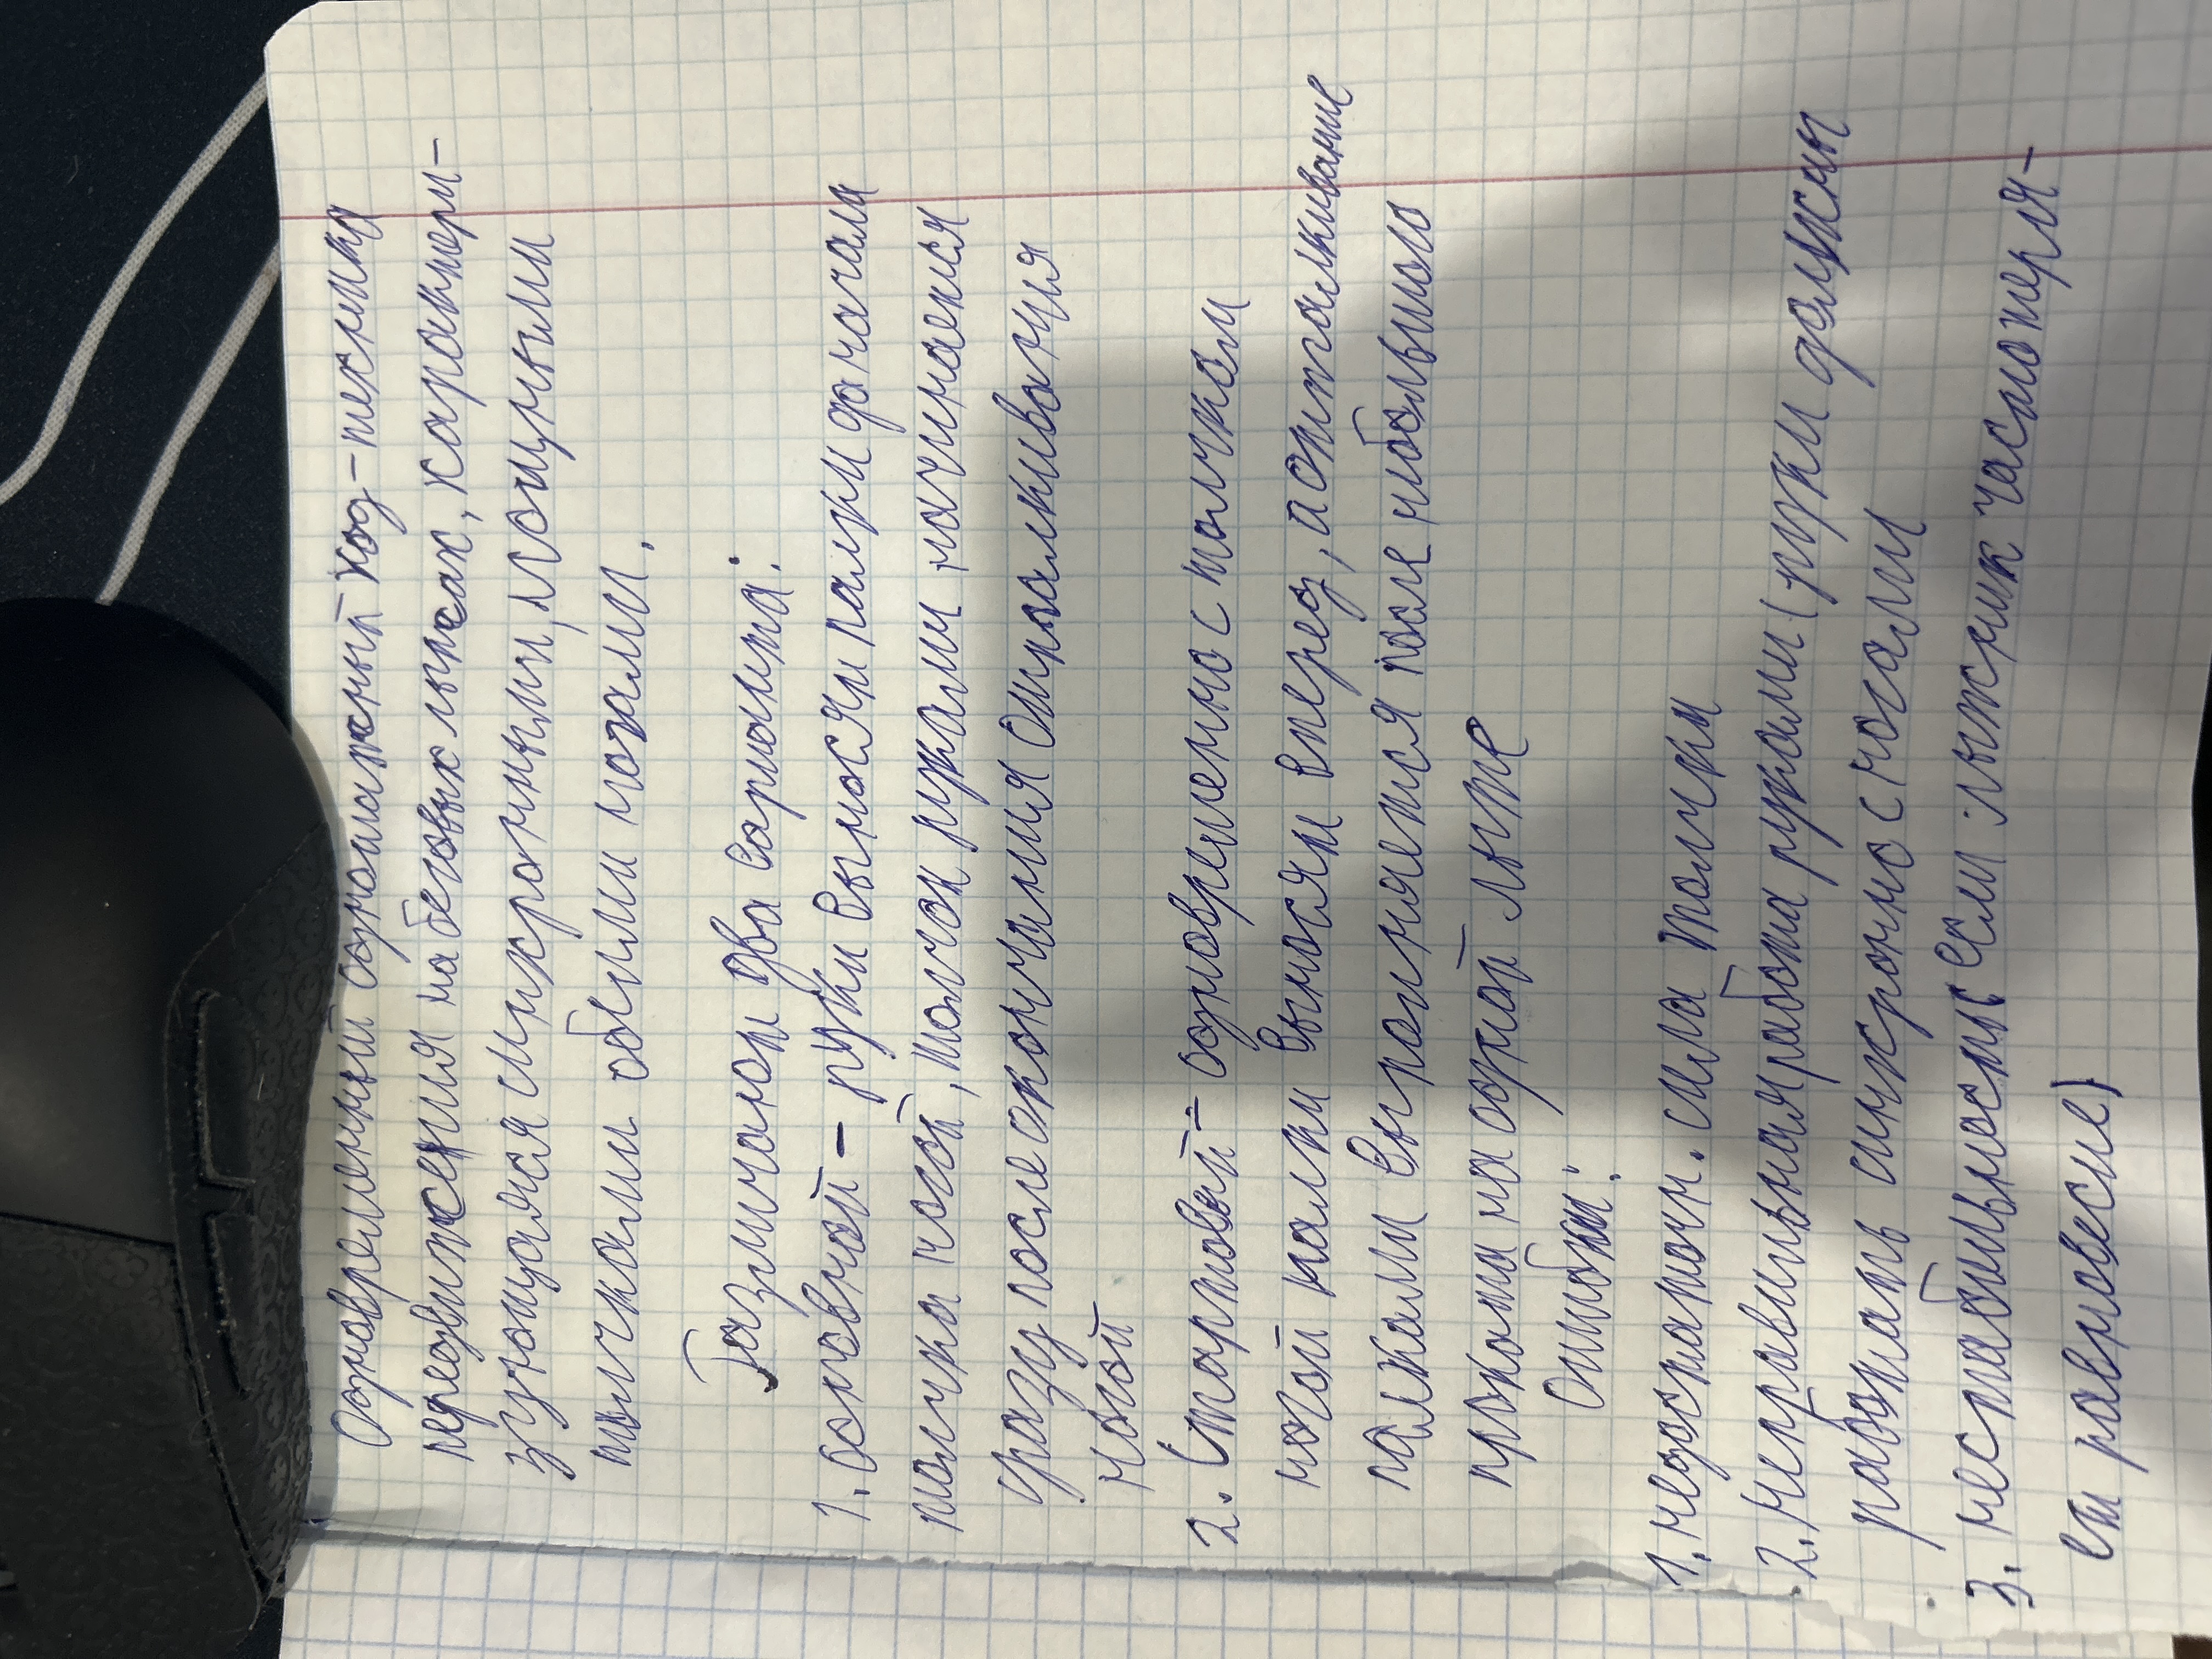 Одновременный одношажный ход - техника
передвижения на беговых лыжах, характери-
зующаяся синхронными, мощными
толчками обеими ногами.
Различают два варианта:
1. основной - руки выносят палки до начала
толчка ногой, толчок руками начинается
сразу после окончания отталкивания
ногой
2. Стартовый - одновременно с толчком
ногой палки выносят вперед, а отталкивание
палками выполняется после небольшого
проката на одной лыже
Ошибки:
1. недостаточн. сила толчка
2. неправильная работа руками (руки должны
работать синхронно с ногами
3. нестабильность если лыжник часто теря-
ет равновесие)